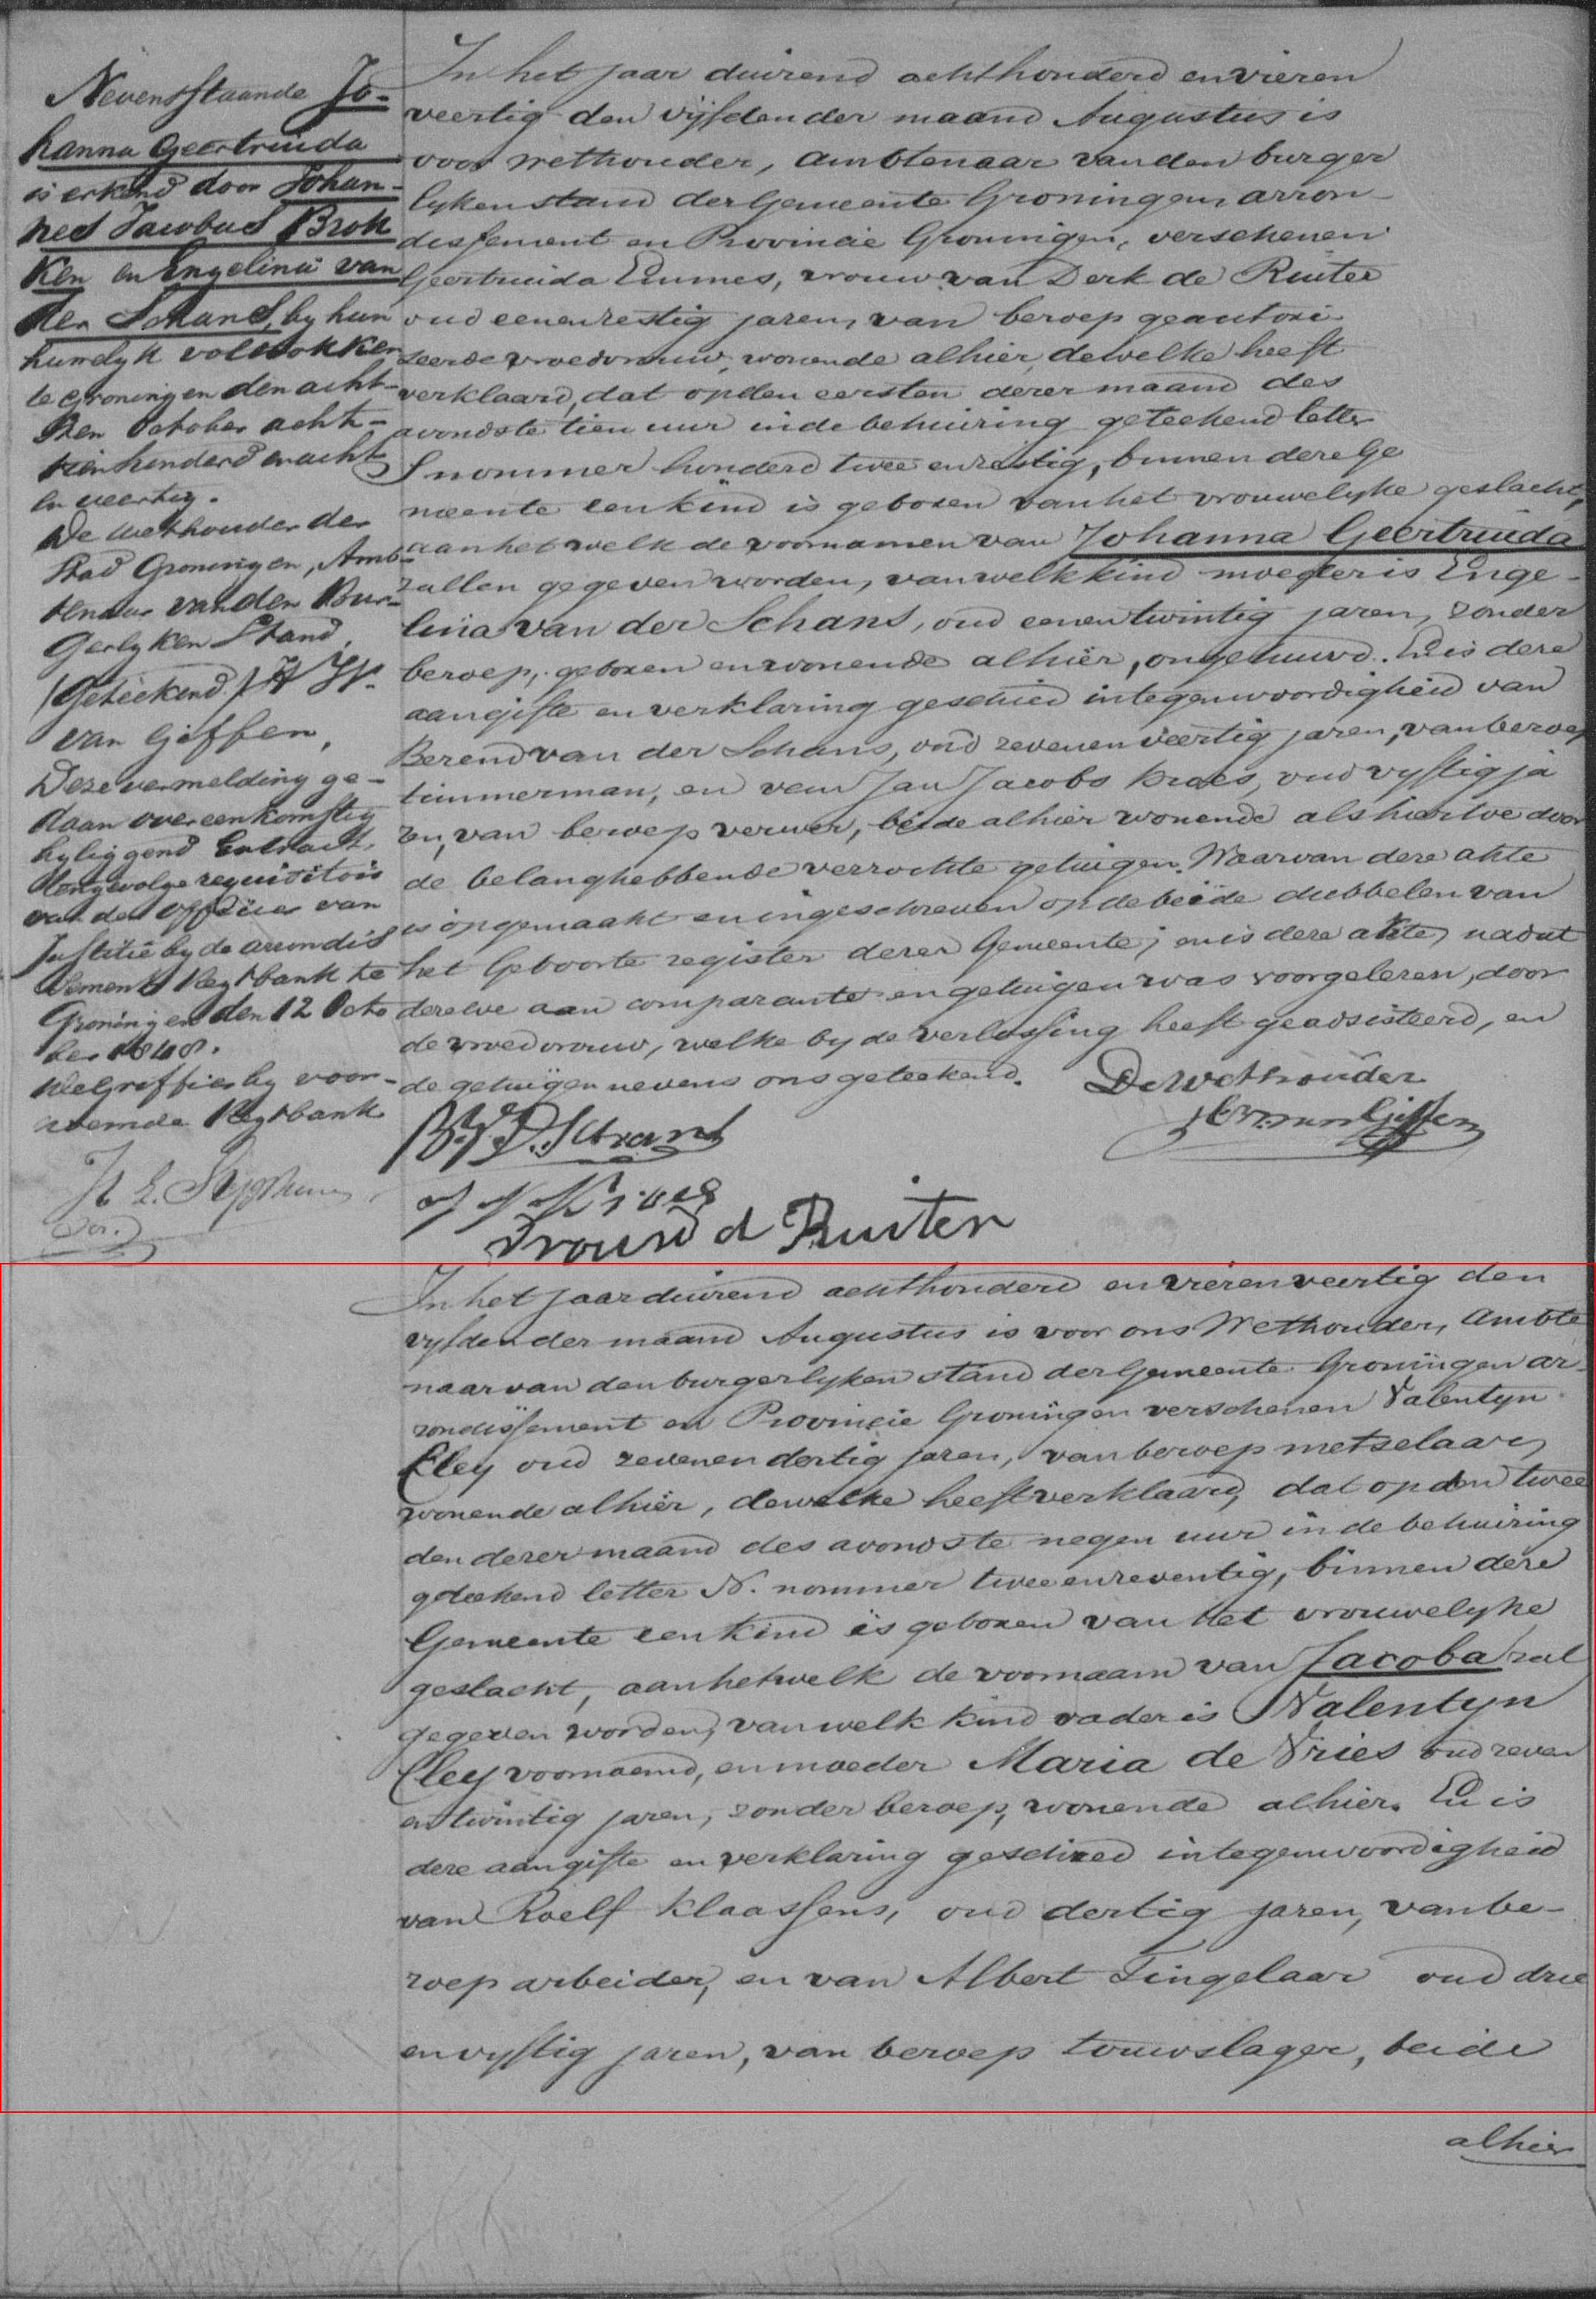 Nevensstaande Jo-
hanna Geertruida
is erkend door Johan-
nes Jacobus Brok
ken en Engelina van
der Schans, by hun
huwelyk voltrokken
te Groningen den acht-
sten October acht-
tienhonderd en acht
en veertig.
De Wethouder der
Stad Groningen, Amb-
tenaar van den Bur-
gerlyken Stand,
(Geteekend)
van Giffen,
Deze vermelding ge-
daan overeenkomstig
byliggend Extract,
tengevolge requisitoir
van den officier van
Justitie by de arrondis
sements Regtbank te
Groningen den 12 Octo
ber 1848.
de Griffier by voor-
noemde Regtbank
In het jaar duizend achthonderd en vieren
veertig den vyfden der maand Augustus is
voor wethouder, ambtenaar van den burger
lyken stand der Gemeente Groningen, arron-
dissement en Provincie Groningen, verschenen
Geertruida Emmes, vrouw van Derk de Ruiter
oud eenenzestig jaren, van beroep geautori
seerde vroedvrouw, wonende alhier, dewelke heeft
verklaard, dat op den eersten dezer maand des
avonds te tien uur in de behuizing geteekend letter
S nommer honderd twee enzestig, binnen deze Ge
meente een kind is geboren van het vrouwelyke geslacht,
aan hetwelk de voornamen van Johanna Geertruida
zullen gegeven worden, van welk kind moeder is Enge-
lina van der Schans, oud eenentwintig jaren, zonder
beroep, geboren en wonende alhier, ongehuwd. En is deze
aangifte en verklaring geschied in tegenwoordigheid van
Berend van der Schans, oud zevenenveertig jaren, van beroep
timmerman, en van Jan Jacobs Kroes, oud vyftig ja
ren, van beroep verwer, beide alhier wonende als hiertoe door
de belanghebbende verzochte getuigen. Waarvan deze akte
is opgemaakt en ingeschreven op de beide dubbelen van
het Geboorte register dezer Gemeente; en is deze akte, nadat
dezelve aan comparante en getuigen was voorgelezen, door
de vroedvrouw, welke by de verlossing heeft geadsisteerd, en
de getuigen nevens ons geteekend. De Wethouder
B V D Schans
J J Kroes
vrouw d Ruiter
In het jaar duizend achthonderd en vierenveertig den
vyfden der maand Augustus is voor ons Wethouder, Ambte
naar van den burgerlyken stand der Gemeente Groningen ar-
rondissement en Provincie Groningen verschenen Valentyn
Cley oud zevenendertig jaren, van beroep metselaar,
wonende alhier, dewelke heeft verklaard, dat op den twee
den dezer maand des avonds te negen uur in de behuizing
geteekend letter N. nommer twee enzeventig, binnen deze
Gemeente een kind is geboren van het vrouwelyke
geslacht, aan hetwelk de voornaam van Jacoba zal
gegeven worden, van welk kind vader is Valentyn
Cley voornoemd, en moeder Maria de Vries oud zeven
en twintig jaren, zonder beroep, wonende alhier. En is
deze aangifte en verklaring geschied in tegenwoordigheid
van Roelf Klaassens, oud dertig jaren, van be-
roep arbeider, en van Albert Tingelaar oud drie
en vyftig jaren, van beroep touwslager, beide
alhier